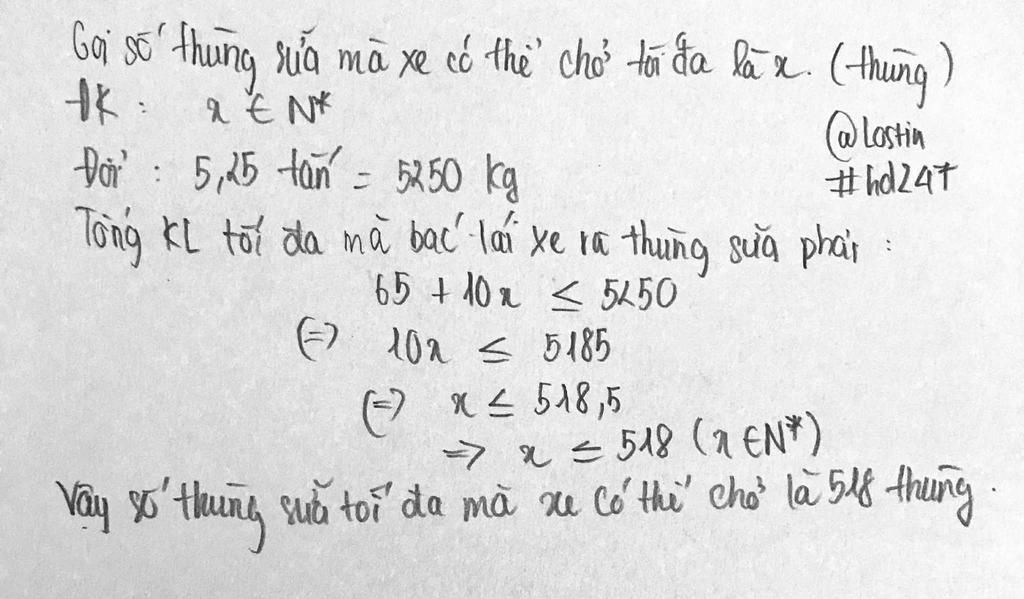 Gọi số thùng sữa mà xe có thể chở tối đa là x. (thùng)
ĐK : x ∈ N*
@Lostin
Đổi : 5,25 tấn = 5250 kg
#hd247
Tổng KL tối đa mà bác lái xe và thùng sữa phải :
65 + 10x ≤ 5250
(=) 10x ≤ 5185
(=) x ≤ 518,5
=> x ≤ 518 (x ∈ N*)
Vậy số thùng sữa tối đa mà xe có thể chở là 518 thùng.